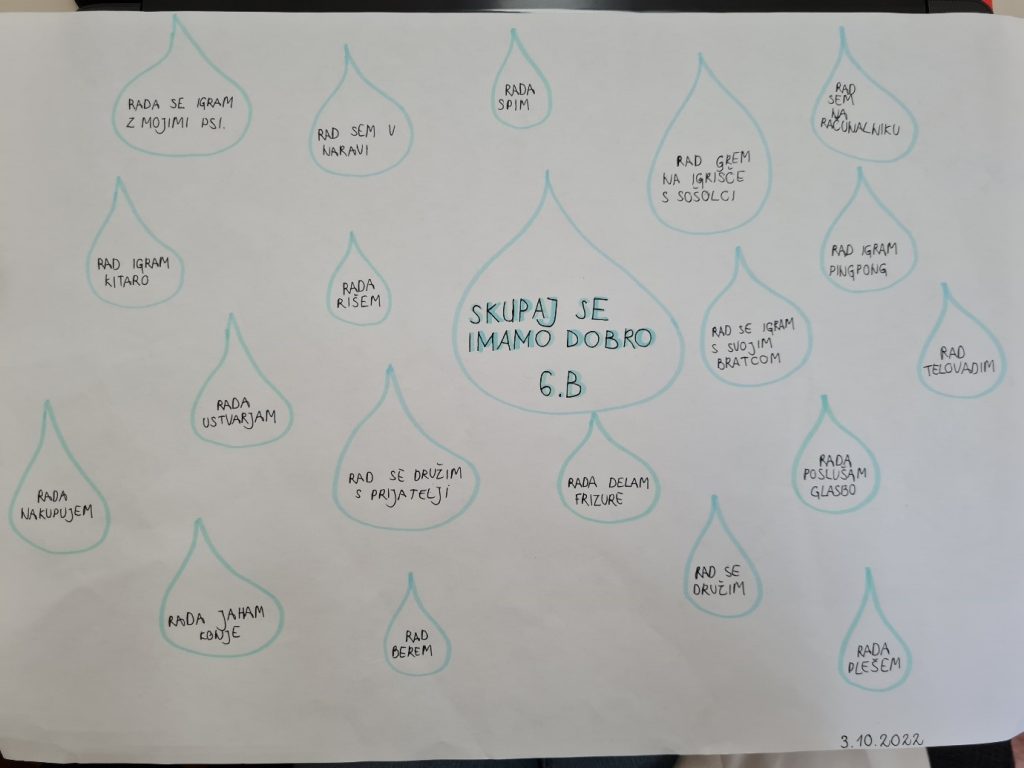 RADA SE IGRAM
Z MOJIMI PSI.
RAD SEM V
NARAVI
RADA
SPIM
RAD GREM
NA IGRIŠČE
S SOŠOLCI
RAD
SEM
NA
RAČUNALNIKU
RAD IGRAM
KITARO
RADA
RIŠEM
SKUPAJ SE
IMAMO DOBRO
6.B
RAD SE IGRAM
S SVOJIM
BRATCOM
RAD IGRAM
PINGPONG
RAD
TELOVADIM
RADA
USTVARJAM
RADA
NAKUPUJEM
RAD SE DRUŽIM
S PRIJATELJI
RADA DELAM
FRIZURE
RADA
POSLUŠAM
GLASBO
RADA JAHAM
KONJE
RAD
BEREM
RAD SE
DRUŽIM
RADA
PLEŠEM
3.10.2022